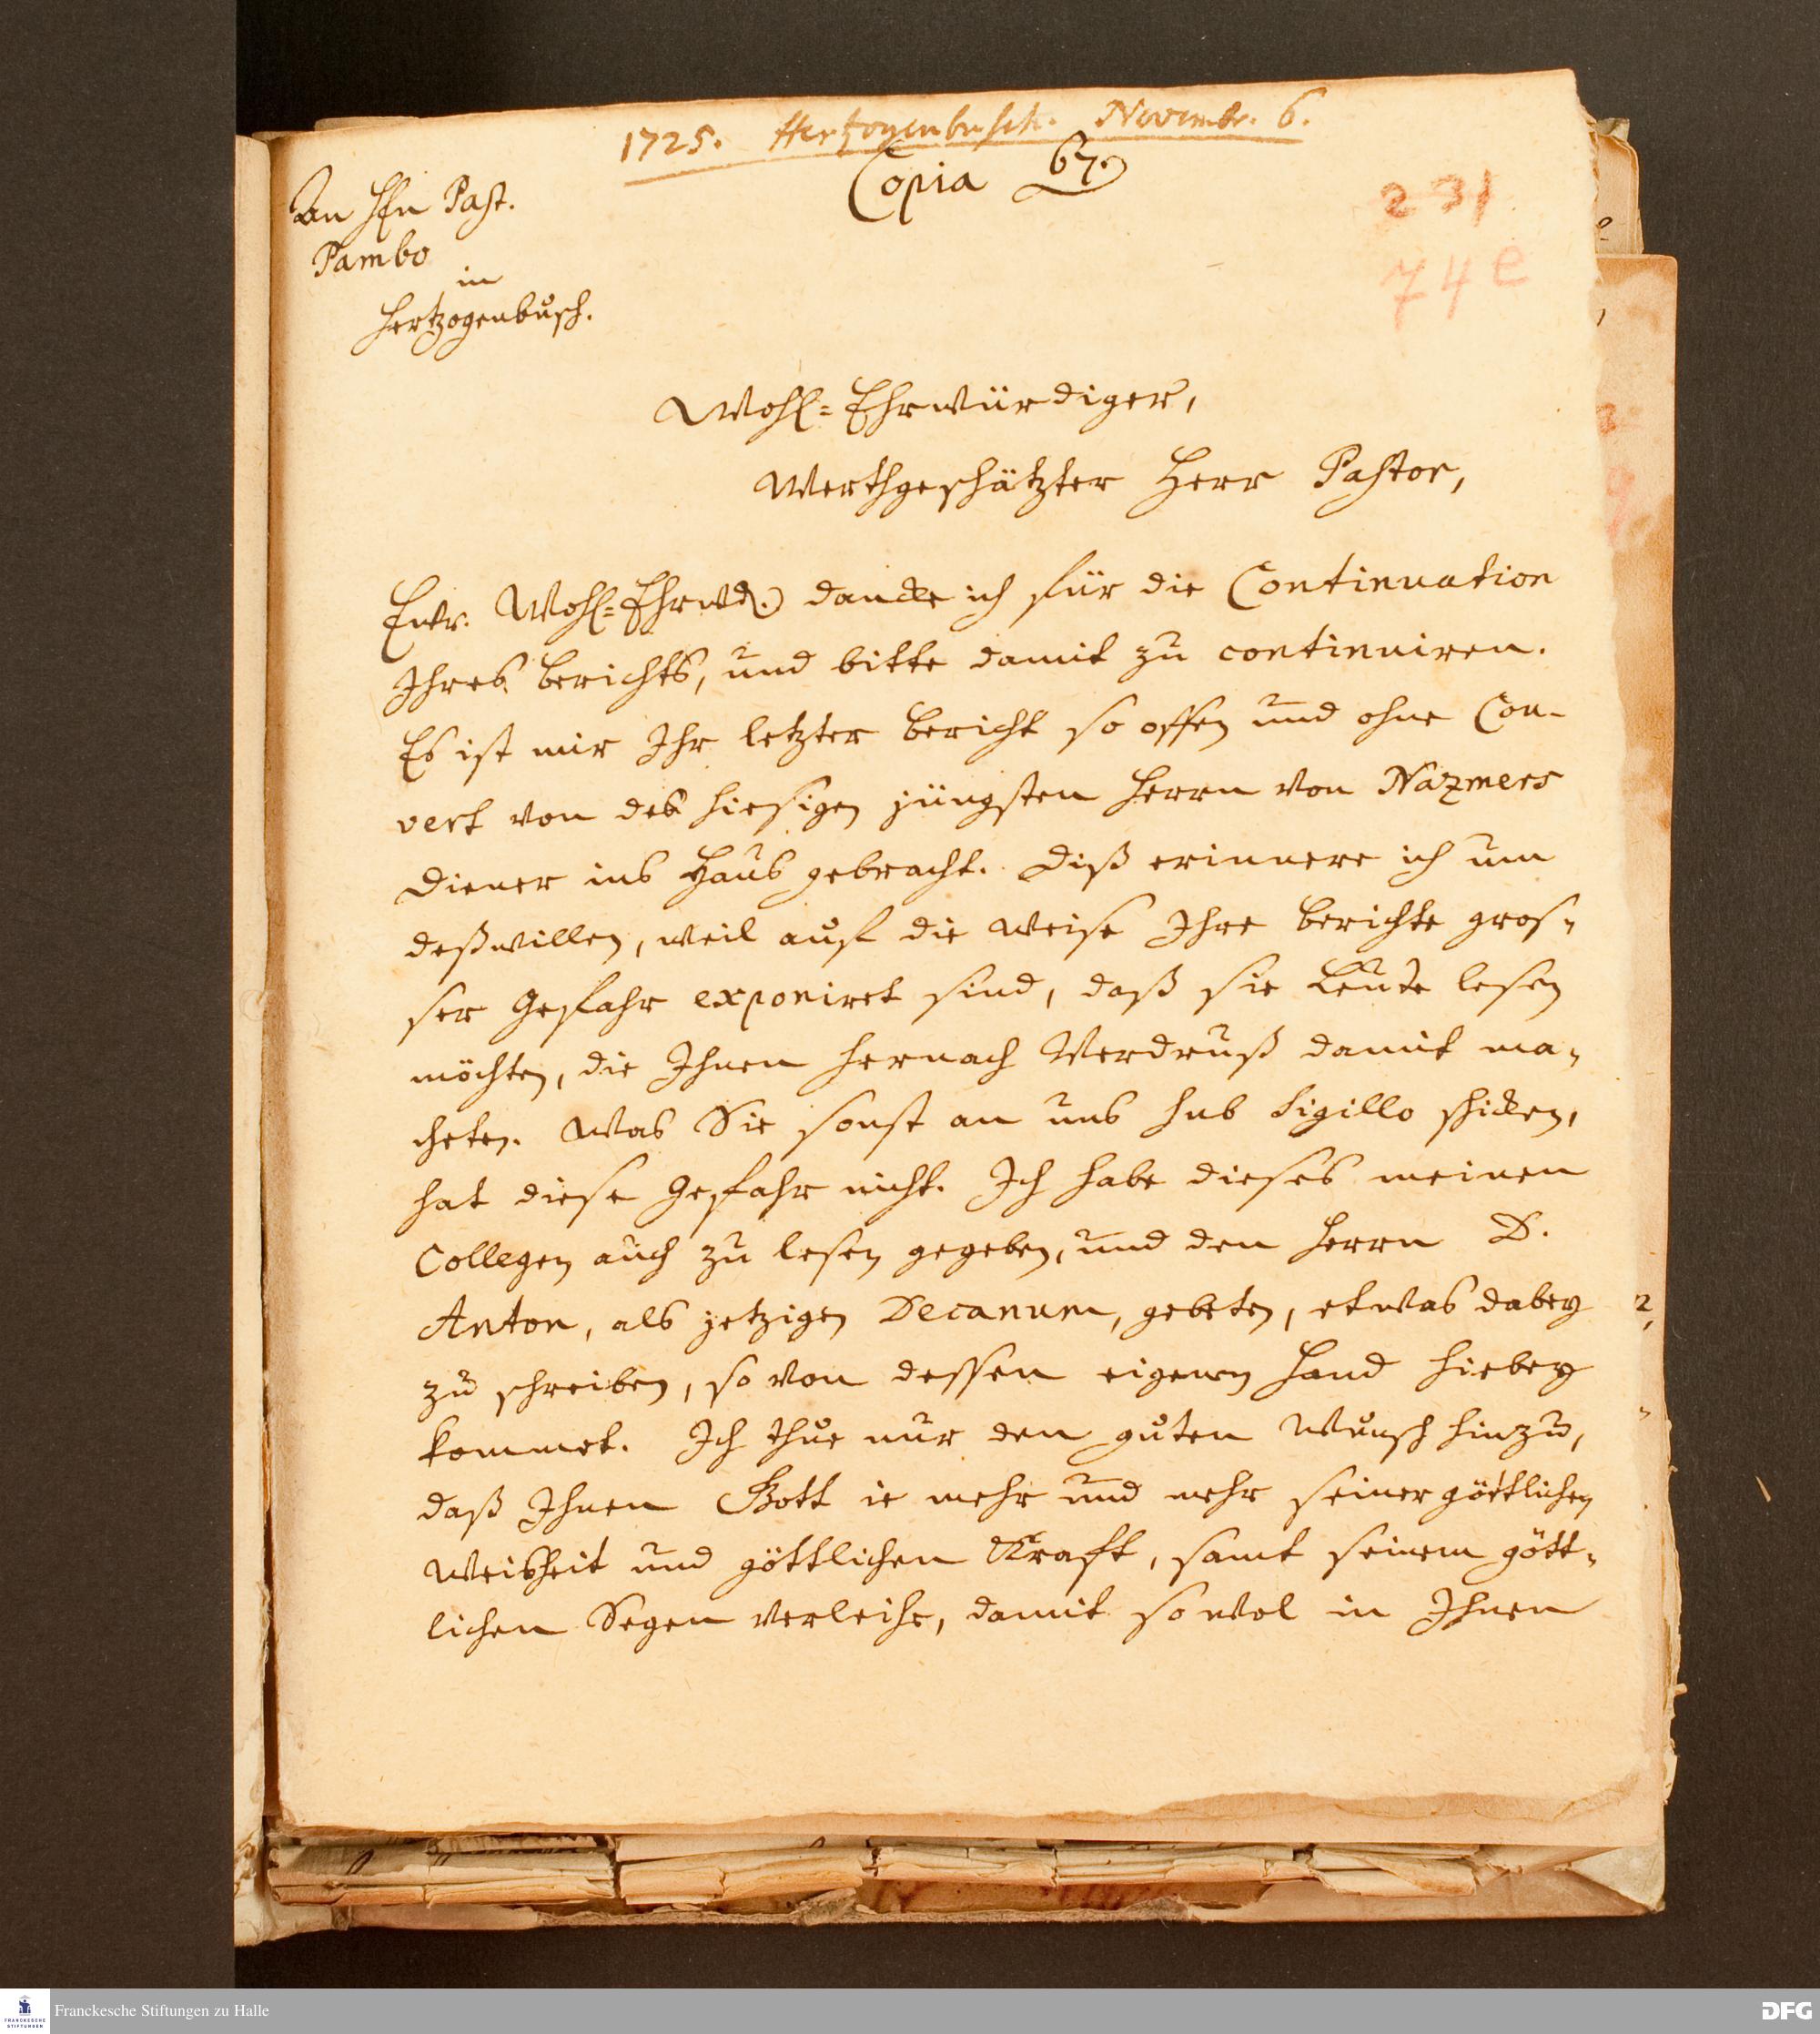 1725. Hertzogenbusch. Novembr. 6.
Copia 67.
231
74e
An Hſn Past.
Pambo
in
Hertzogenbusch.
Wohl=Ehrwürdiger,
Werthgeschätzter Herr Pastor,
Ewr. Wohl=Ehrwd. dancke ich für die Continuation
Ihres berichts, und bitte damit zu continuiren.
Es ist mir Ihr letzter bericht so offen und ohne Cou-
vert von des hiesigen jüngsten Herrn von Nazmers
Diener ins Haus gebracht. Diß erinnere ich um
deßwillen, weil auf die weise Ihre berichte gros-
ser Gefahr exponiret sind, daß sie Leute lesen
möchten, die Ihnen hernach Verdruß damit ma-
cheten. Was Sie sonst an uns sub Sigillo schicken,
hat diese Gefahr nicht. Ich habe dieses meinen
Collegen auch zu lesen gegeben, und den Herrn D.
Anton, als jetzigen Decanum, gebeten, etwas dabey
zu schreiben, so von dessen eigenen Hand hiebey
kommet. Ich thue nur den guten Wunsch hinzu,
daß Ihnen Gott ie mehr und mehr seiner göttlichen
Weisheit und göttlichen Krafft, samt seinem gött-
lichen Segen verleihe, damit so wol in Ihnen
Franckesche Stiftungen zu Halle
FRANCKESCHE
STIFTUNGEN
DFG